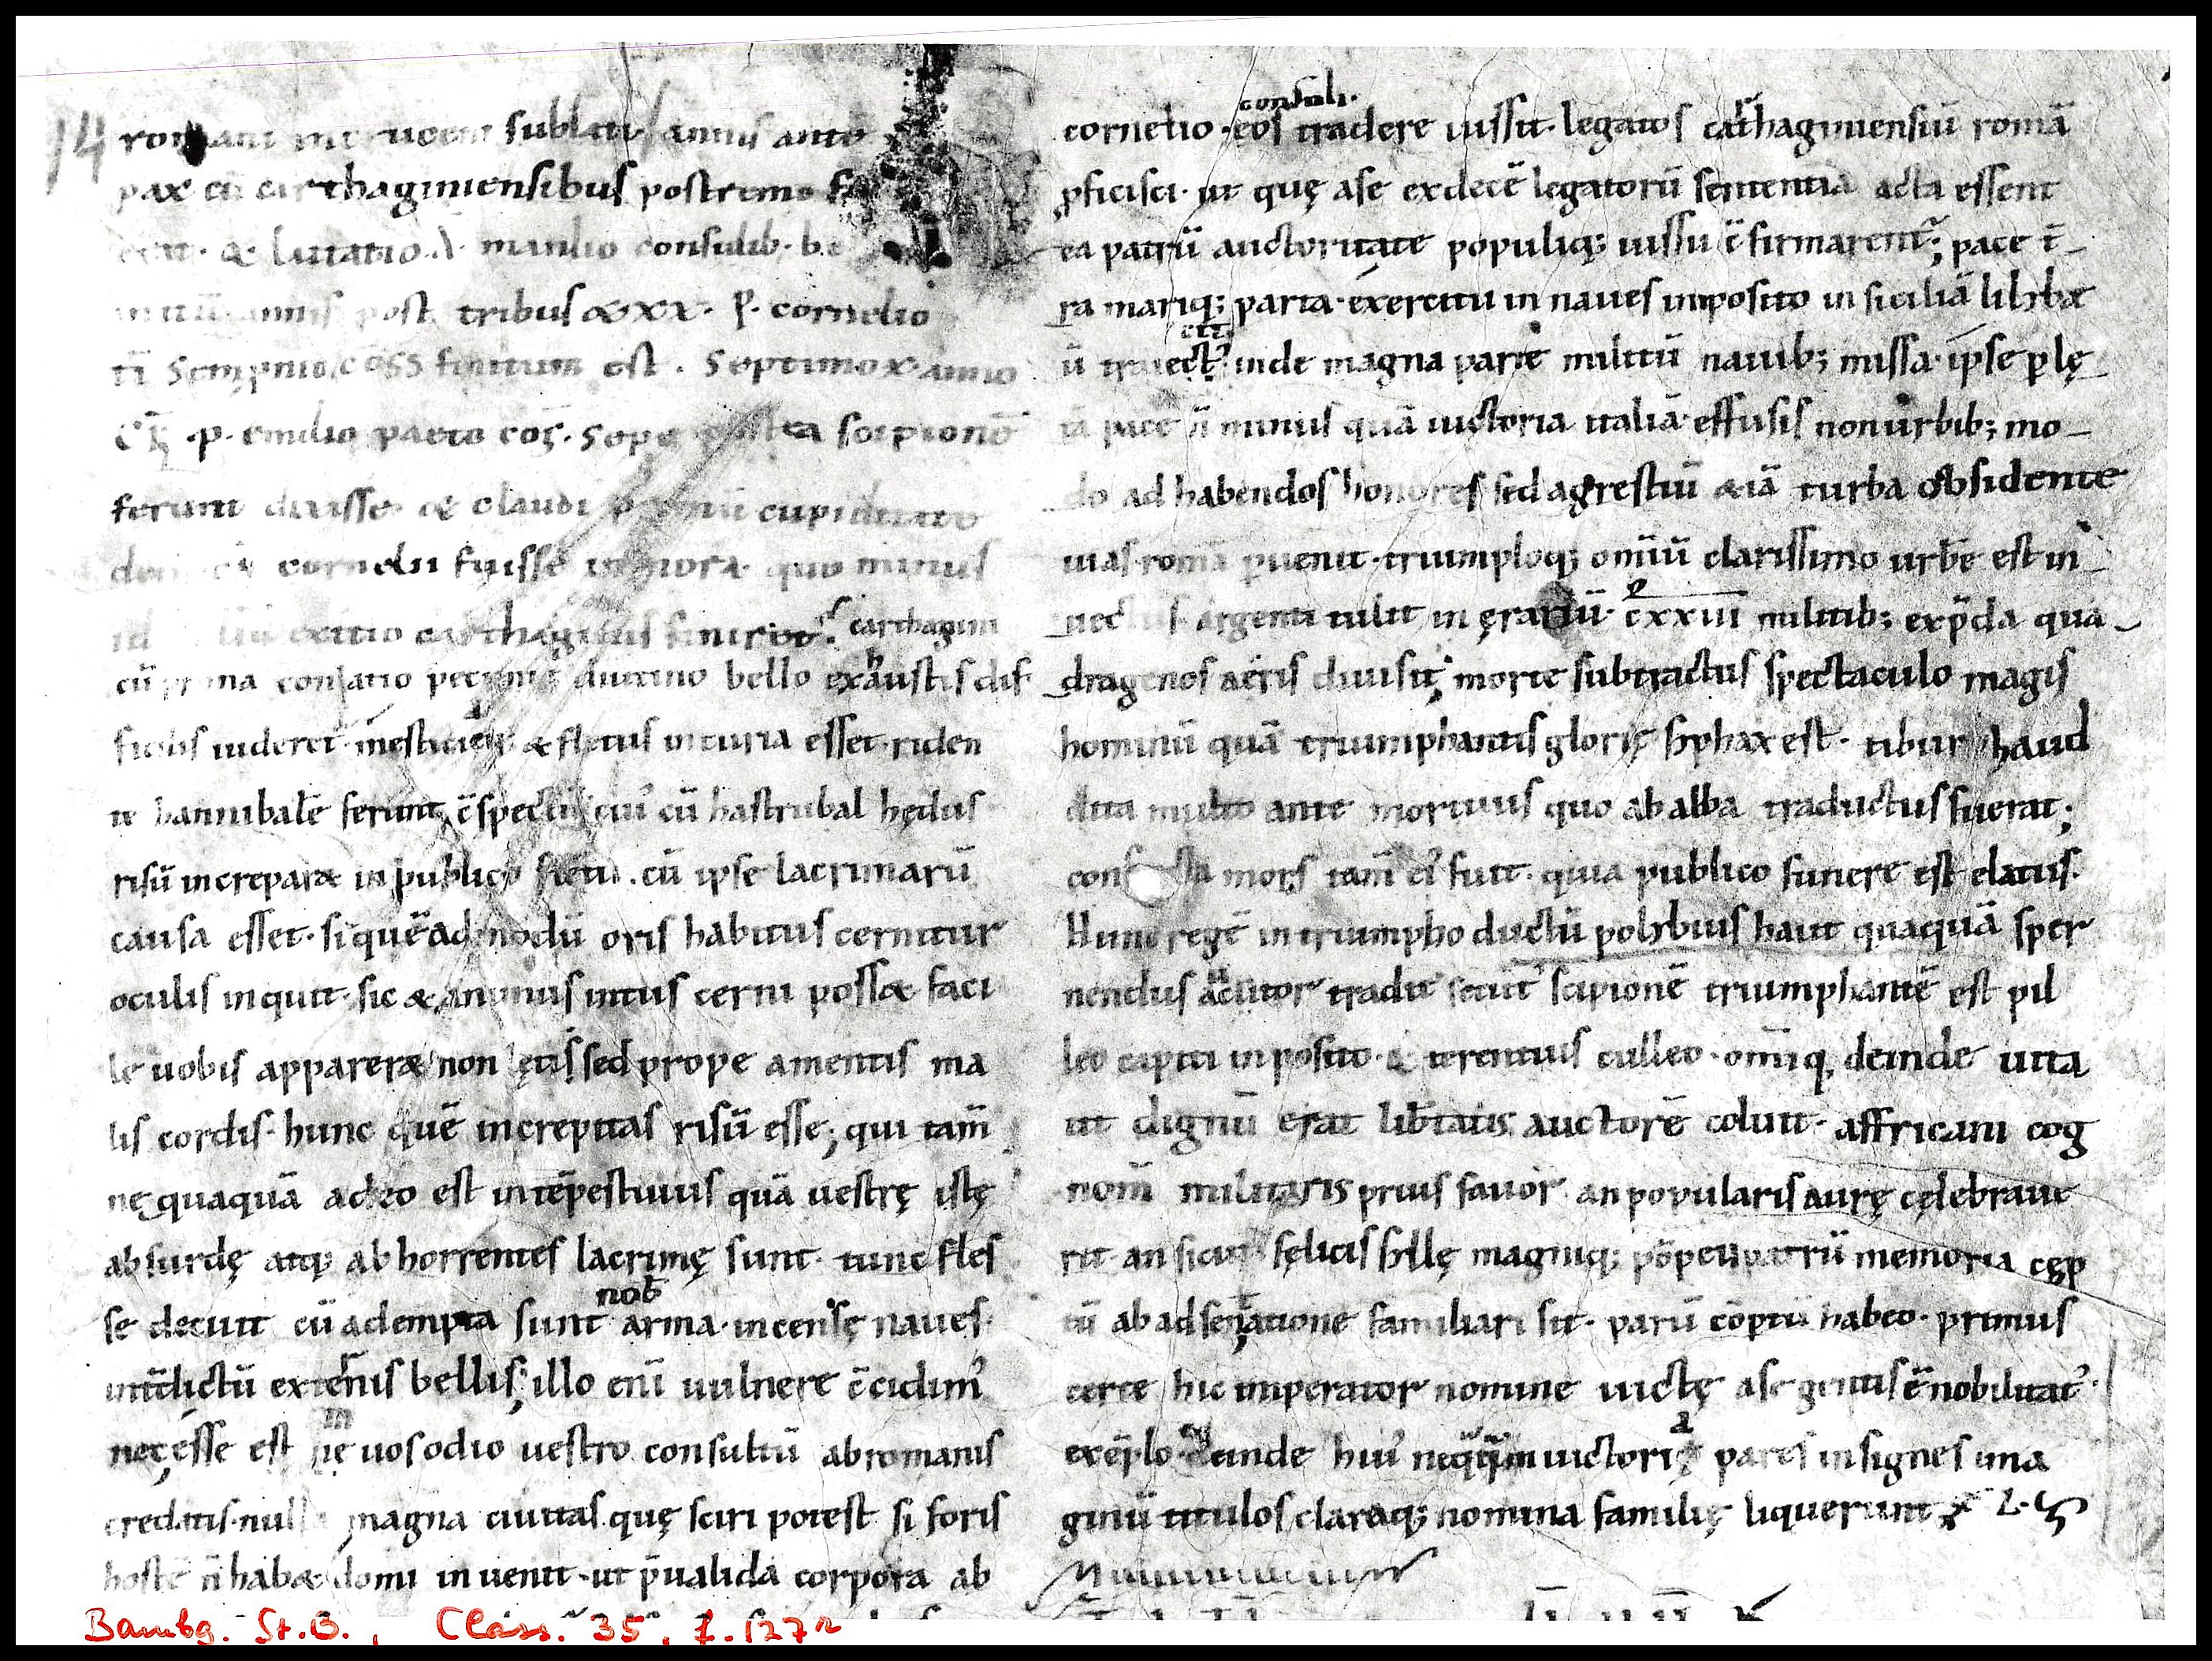 14
romani in crucem sublati annis ante
pax cū carthaginiensibus postremo
& lutatio A manlio consulib. be
annis post tribus & xx. P. cornelio
ti Sempnio coss finitum est. Septimo x anno
P. emilio paeto cos. Sepe postea scipionē
ferunt dixisse claudi cupiditate
cornelii fuisse in mora quo minus
id exitio carthaginis finiret. carthagini
cū prima conlatio pecunię diutino bello exhaustis dif
ficilis uideret. mestitiaq; & fletus in curia esset. riden
tē hannibalē ferunt c̄spectū cui' cū hastrubal hędus
risū increparæ in publico fletu. cū ipse lacrimarū
causa esset. si quēadmodū oris habitus cernitur
oculis inquit. sic & animus intus cerni posset faci
le uobis appareræ non lętis sed prope amentis ma
lis cordis. hunc quē increpitas risū esse; qui tam̄
nęquaquā adeo est intēpestiuus quā uestrę istę
absurdę atq; abhorrentes lacrimę sunt. tunc fles
nob̄
se decuit cū adempta sunt arma. incensę naues.
int̄dictū externis bellis; illo eni uulnere c̄cidim'
m
necesse est ne uos odio uestro consultū ab romanis
credatis. nulla magna ciuitas quę sciri potest si foris
hostē n̄ habæ domi inuenit. ut p̄ualida corpora ab
consuli.
cornelio. eos tradere iussit. legatos carthaginiensiū romā
ꝓficisci. ut quę a se ex decē legatorū sententia acta essent
ea patrū auctoritate populiq; iussu c̄firmarent'; pace t̄
ra mariq; parta. exercitu in naues inposito in siciliā lilybæ
ū traiect' inde magna parte militū nauib; missa. ipse p lę
tā pace n̄ minus quā uictoria italiā effusis non urbib; mo
do ad habendos honores sed agrestiū &iā turba obsidente
uias. romā puenit. triumphoq; omiū clarissimo urbē est in
uectus. argenti tulit in ęrariū. cxxiii militib; exp̄da qua
dragenos aeris diuisit; morte subtractus spectaculo magis
hominū quā triumphantis glorię syphax est. tibur haud
dita multo ante mortuus quo ab alba traductus fuerat;
mors tam̄ ei' fuit. quia publico funere est elatus.
Hunc regē in triumpho ductū polybius haut quaquā sper
nendus auctor tradit secut' scipionē triumphantē est pil
leo capiti inposito. & terentius culleo. om̄iq; deinde uita
ut dignū erat lib̄tatis auctorē coluit. affricani cog
nom̄ militaris prius fauor an popularis aurę cęlebraue
rit. an sicut fęlicis syllę magniq; pōpeii patrū memoria cęp
tū ab adsentatione familiari sit. parū cōptū habeo. primus
certe hic imperator nomine uictę a se gentis ē nobilitat'.
exēplo deinde hui' neq̄q̄m uictoria pares insignes ima
ginū titulos claraq; nomina familię liquerunt
Bambg. St.B., Class. 35, f. 127r